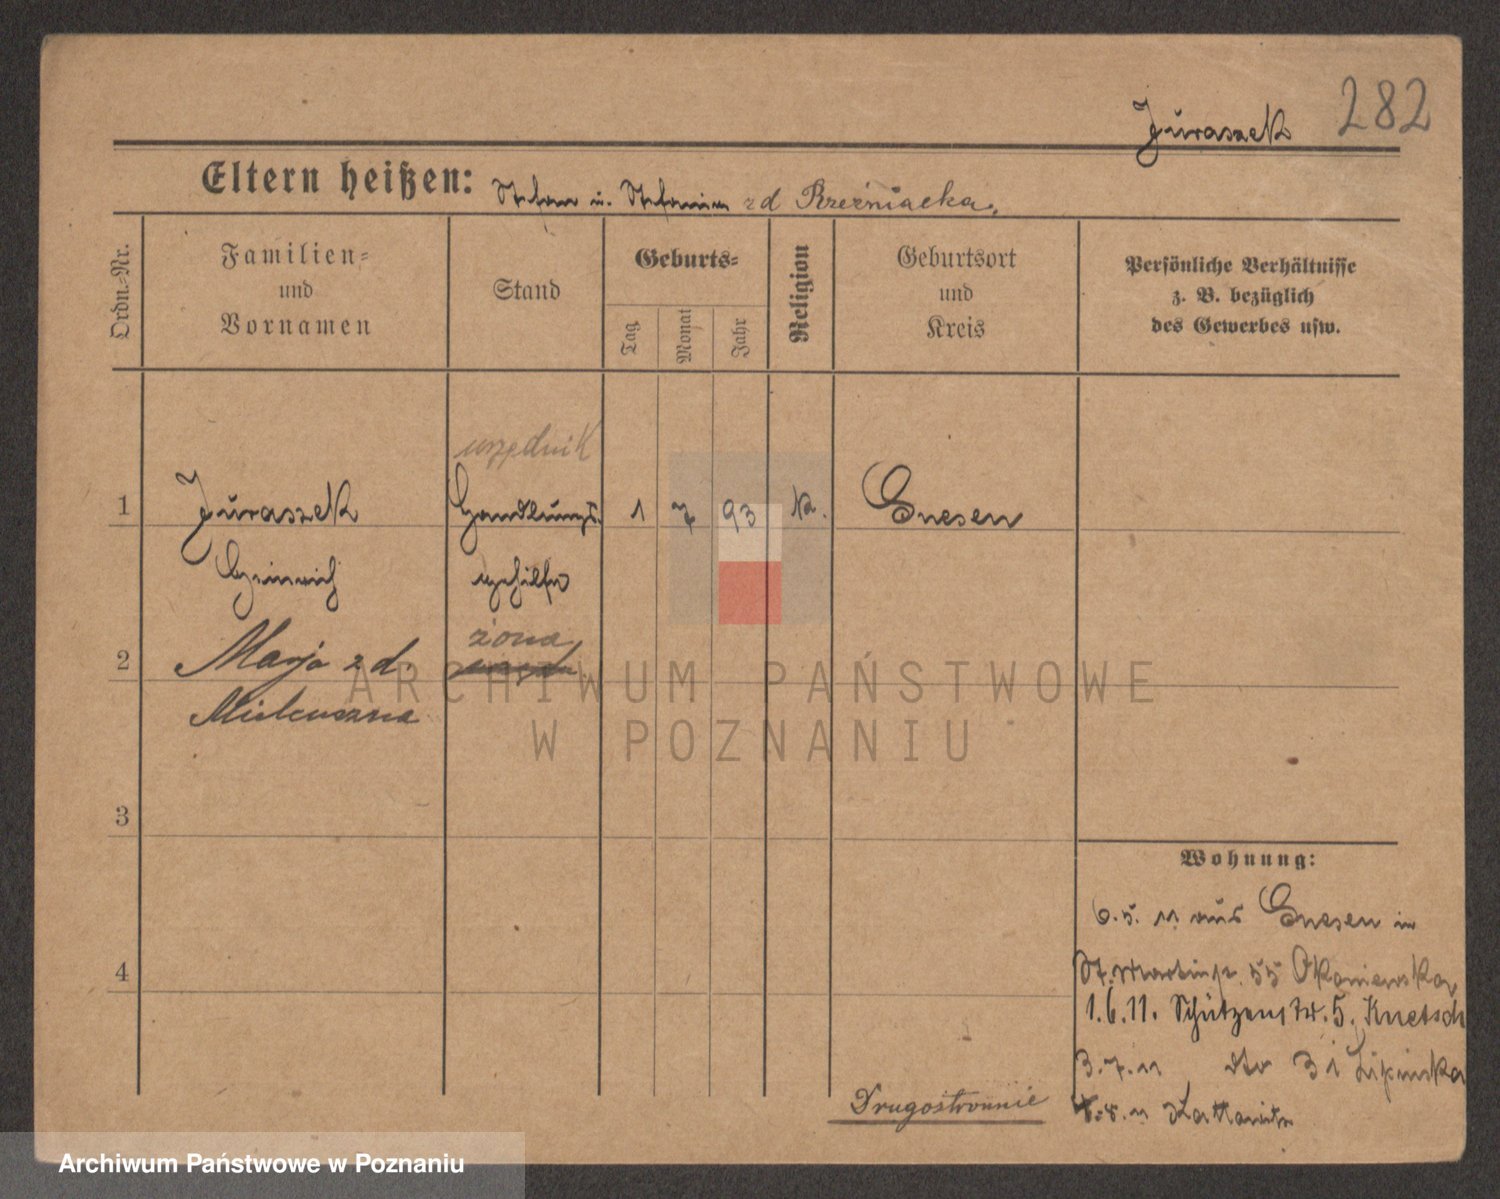 282
Juraszek
Eltern heißen: Stefan u. Stefania zd Brzeźniacka.
Ordn.-Nr.
Familien-
und
Vornamen
Stand
Geburts-
Tag
Monat
Jahr
Religion
Geburtsort
und
Kreis
Persönliche Verhältnisse
z. B. bezüglich
des Gewerbes usw.
urzędnik
1 Juraszek Handlungs. 1 7 93 K. Gnesen
Heinrich gehilfe
żona
2 Marja z d.
3
4
Wohnung:
6.5. 11 aus Gnesen in
St. Martinstr. 55 Okoniewska
1.6.11. Schützenstr. 5. Knetsch
3.7.11 dto 31 Lipinska
11 Kattowitz
Drugostronnie
ARCHIWUM PAŃSTWOWE
W POZNANIU
Archiwum Państwowe w Poznaniu